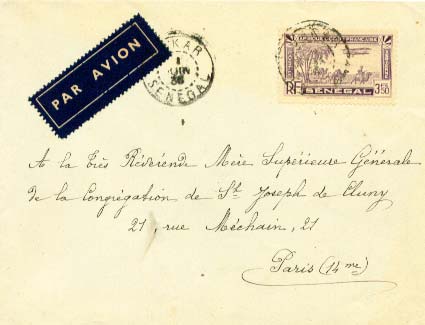 PAR AVION
DAKAR
1
JUIN
36
SENEGAL
AFRIQUE OCCIDENTALE FRANÇAISE
RF SENEGAL 3F50
A la Très Révérende Mère Supérieure Générale
de la Congrégation de St. Joseph de Cluny
21, rue Méchain, 21
Paris (14 me)